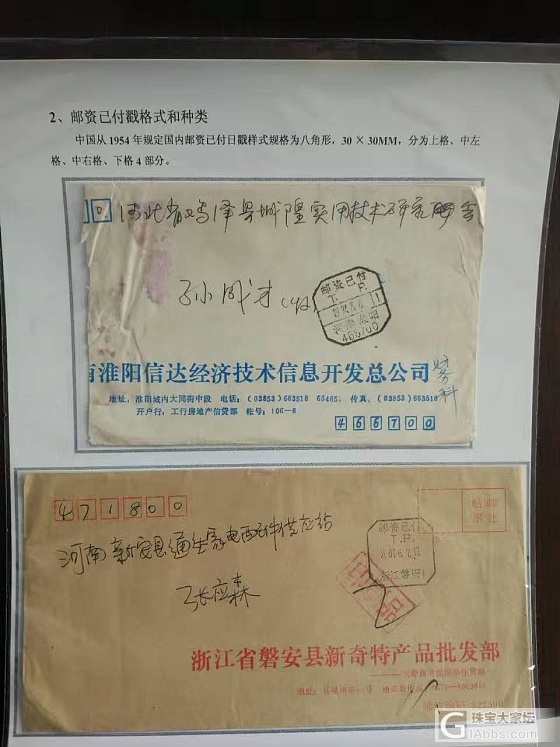 2、邮资已付戳格式和种类
中国从1954年规定国内邮资已付日戳样式规格为八角形，30×30MM，分为上格、中左
格、中右格、下格4部分。
河北省鸡泽县城隍实用技术研究联合
孙成才（收
邮资已付
T. P.
河南淮阳
466700
南淮阳信达经济技术信息开发总公司
财务科
地址：淮阳城内大同街中段 电话：(03853)663518 66465. 传真：(03853)663518
开户行：工行房地产信贷部 帐号：106-8
466700
471800
贴邮
票处
河南新安县通生家电配件供应站
邮资已付
T.P.
浙江磐安
张应森
印刷品
浙江省磐安县新奇特产品批发部
珠宝大家坛
iAbbs.com